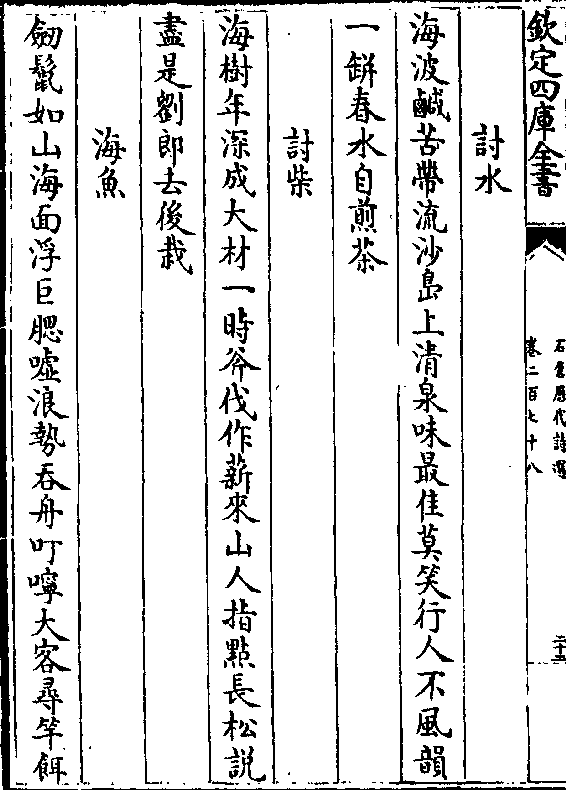 欽定四庫全書
石倉歷代詩選
卷二百七十八
討水
海波鹹苦帶流沙島上清泉味最佳莫笑行人不風韻
一缾春水自煎茶
討柴
海樹年深成大材一時斧伐作薪來山人指點長松説
盡是劉郎去後栽
海魚
劒鬛如山海面浮巨腮噓浪勢吞舟叮嚀大客尋竿餌